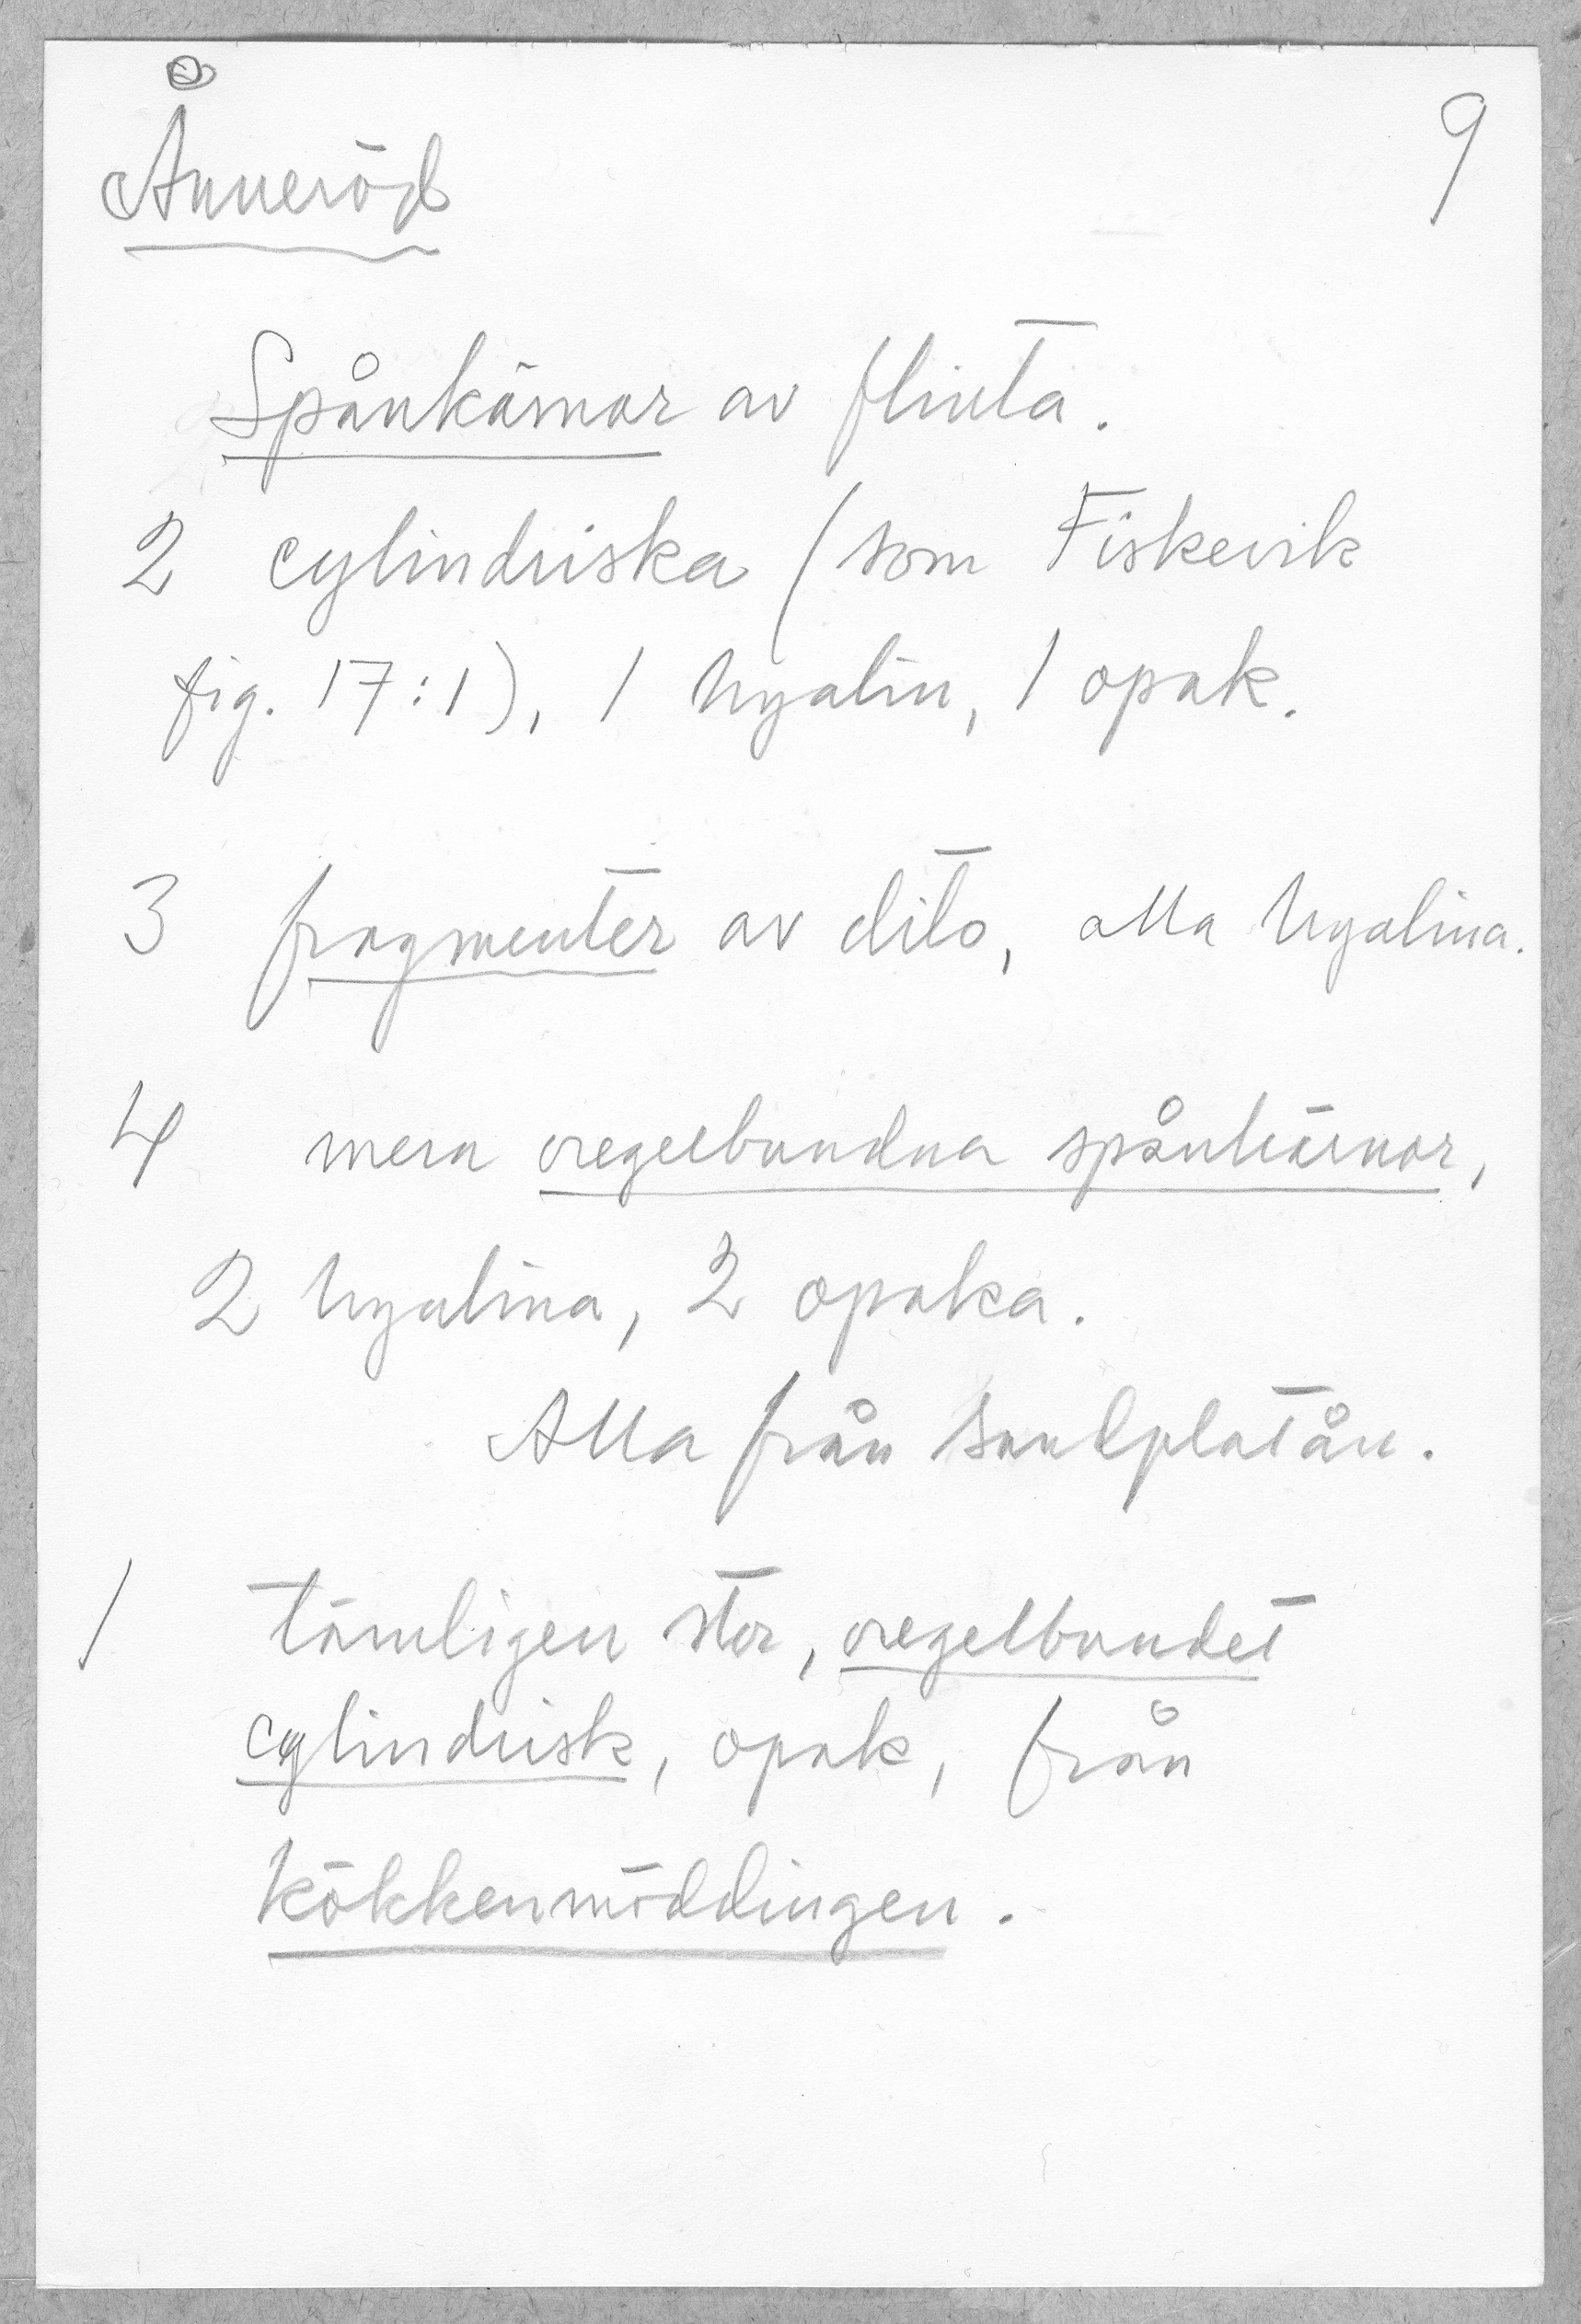 Ånneröd
9
Spånkärnor av flinta.
2 cylindriska (som Fiskevik
fig. 17:1), 1 hyalin, 1 opak.
3 fragmenter av dito, alla hyalina.
4 mera oregelbundna spånkärnor,
2 hyalina, 2 opaka.
Alla från sandplatån.
1 tämligen stor, oregelbundet
cylindrisk, opak, från
kökkenmöddingen.